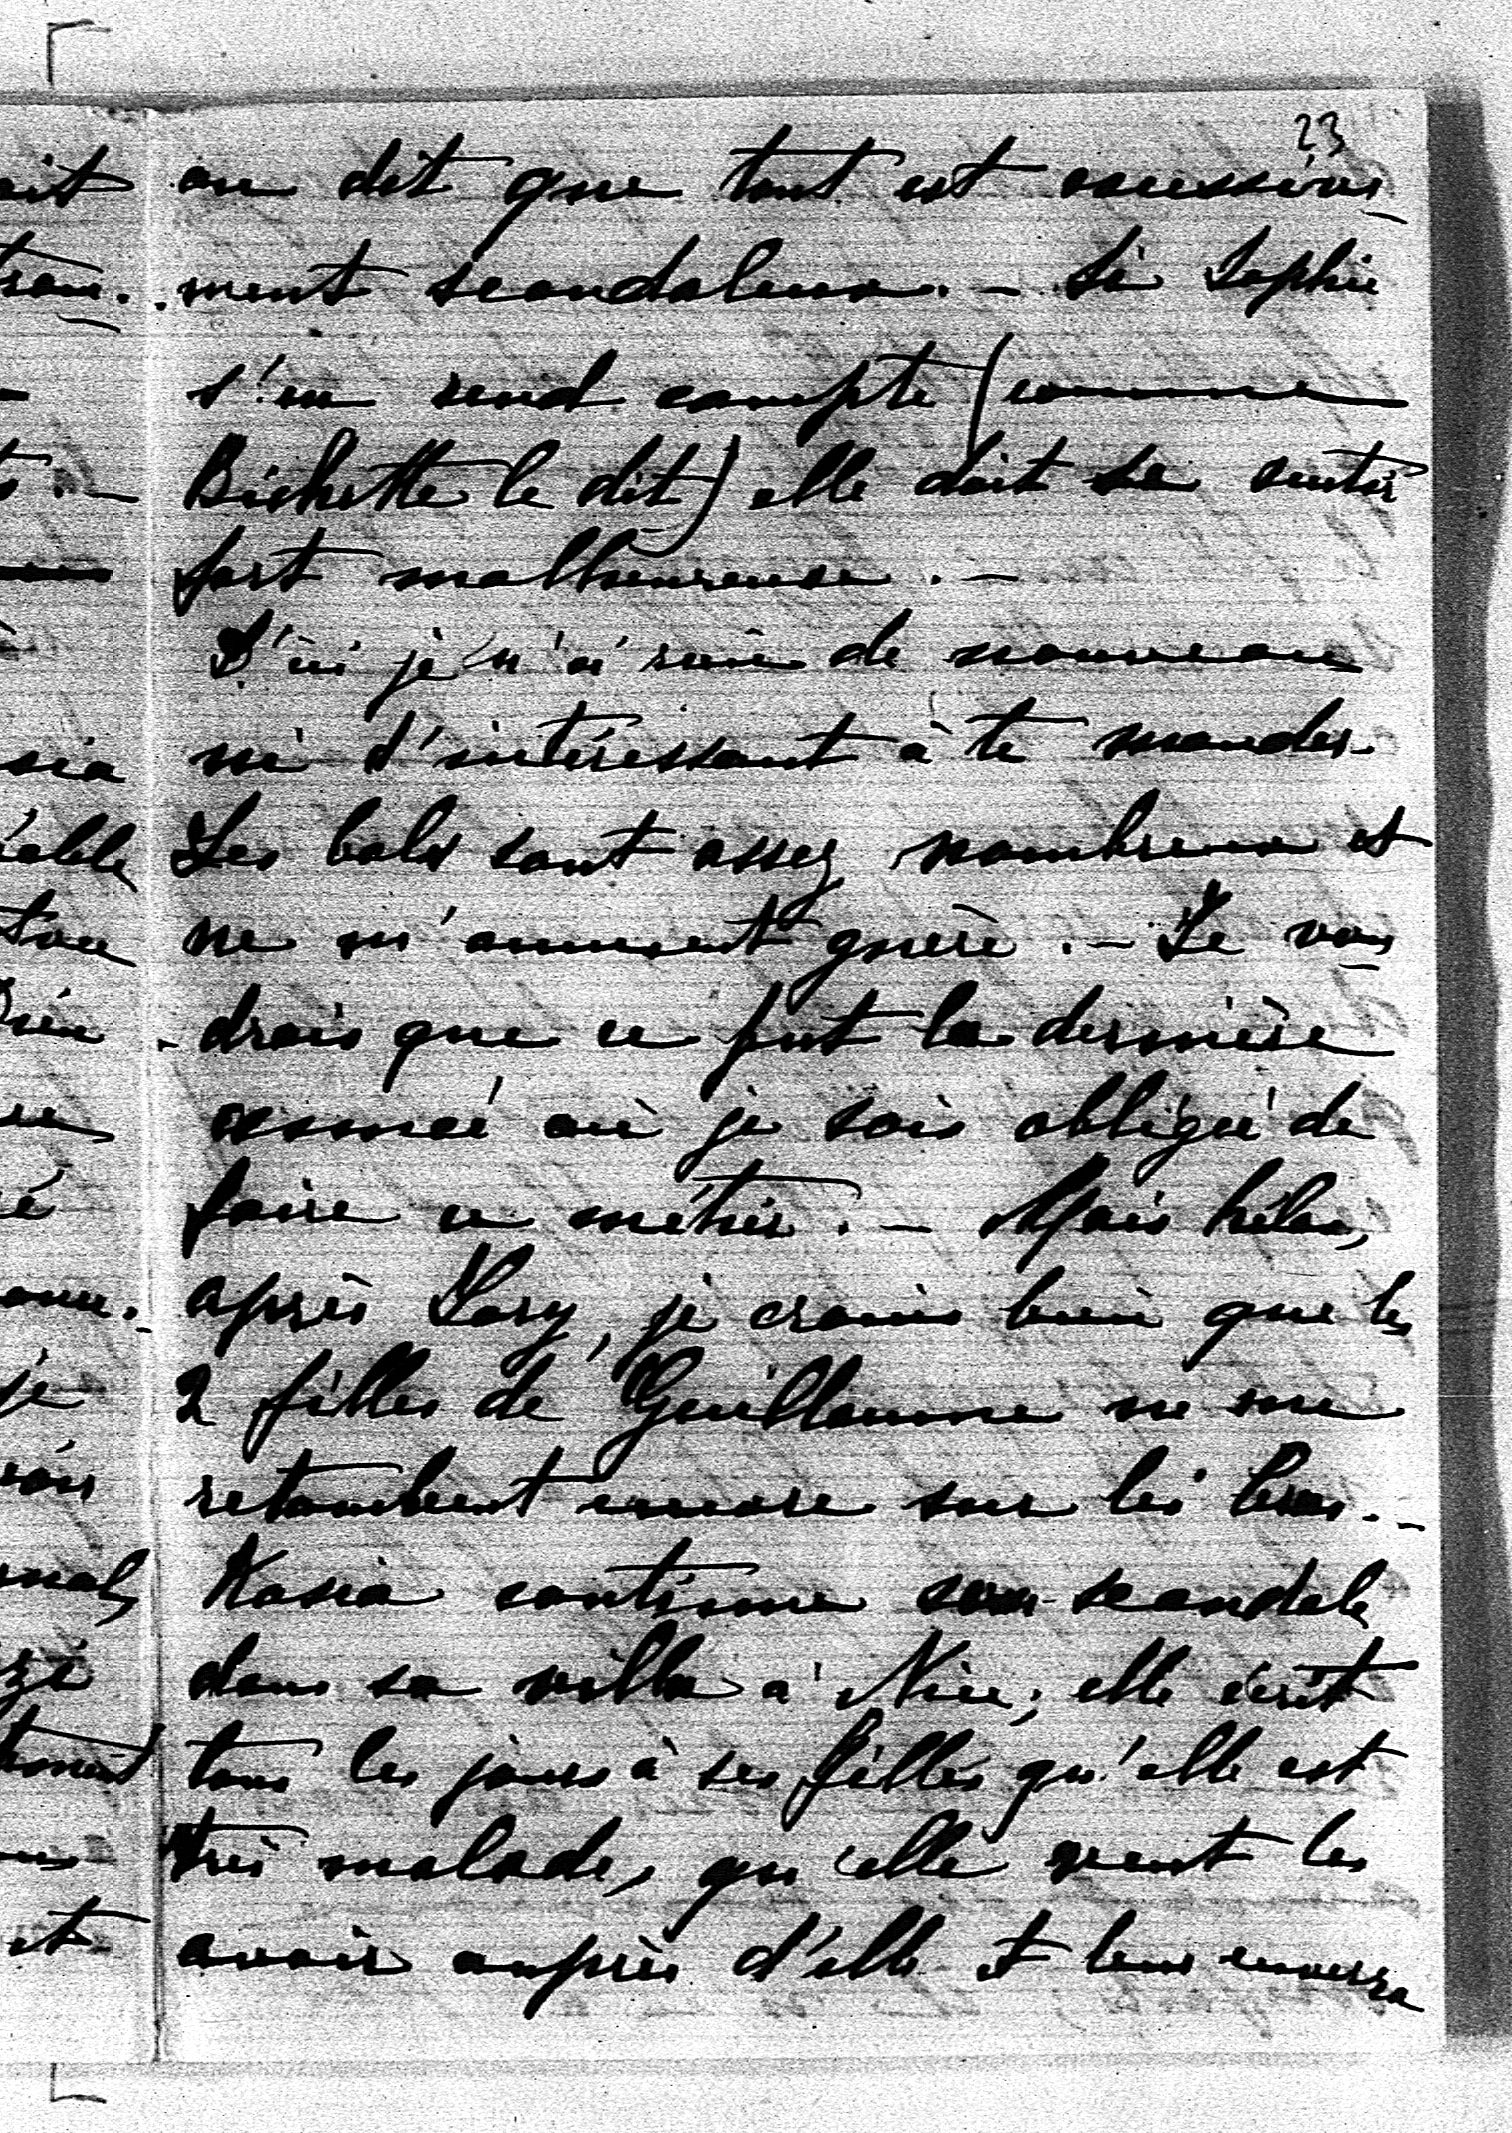 23
on dit que tout est excessive-
ment scandaleux. — Si Sophie
s'en rend compte (comme
Bichette le dit) elle doit se sentir
fort malheureuse. —
D'ici je n'ai rien de nouveau
ni d'intéressant à te mander.
Les bals sont assez nombreux et
ne m'amusent guère. — Je vou-
drais que ce fut la dernière
année où je sois obligée de
faire ce métier. — Mais hélas,
après , je crains bien que les
2 filles de Guillaume ne me
retombent encore sur les bras. —
Kasia continue son scandale
dans sa villa à Nice; elle écrit
tous les jours à ses filles qu'elle est
très malade, qu'elle veut les
avoir auprès d'elle et leur enverra